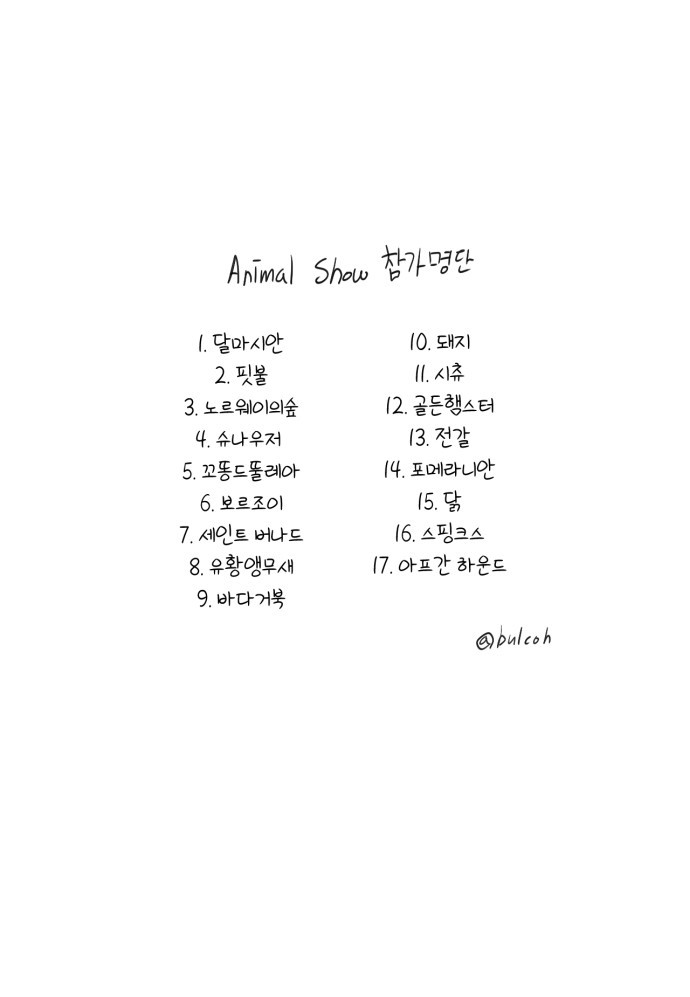 Animal Show 참가명단
1. 달마시안
2. 핏불
3. 노르웨이의숲
4. 슈나우저
5. 꼬똥드뚤레아
6. 보르조이
7. 세인트 버나드
8. 유황앵무새
9. 바다거북
10. 돼지
11. 시츄
12. 골든햄스터
13. 전갈
14. 포메라니안
15. 닭
16. 스핑크스
17. 아프간 하운드
@bulcoh